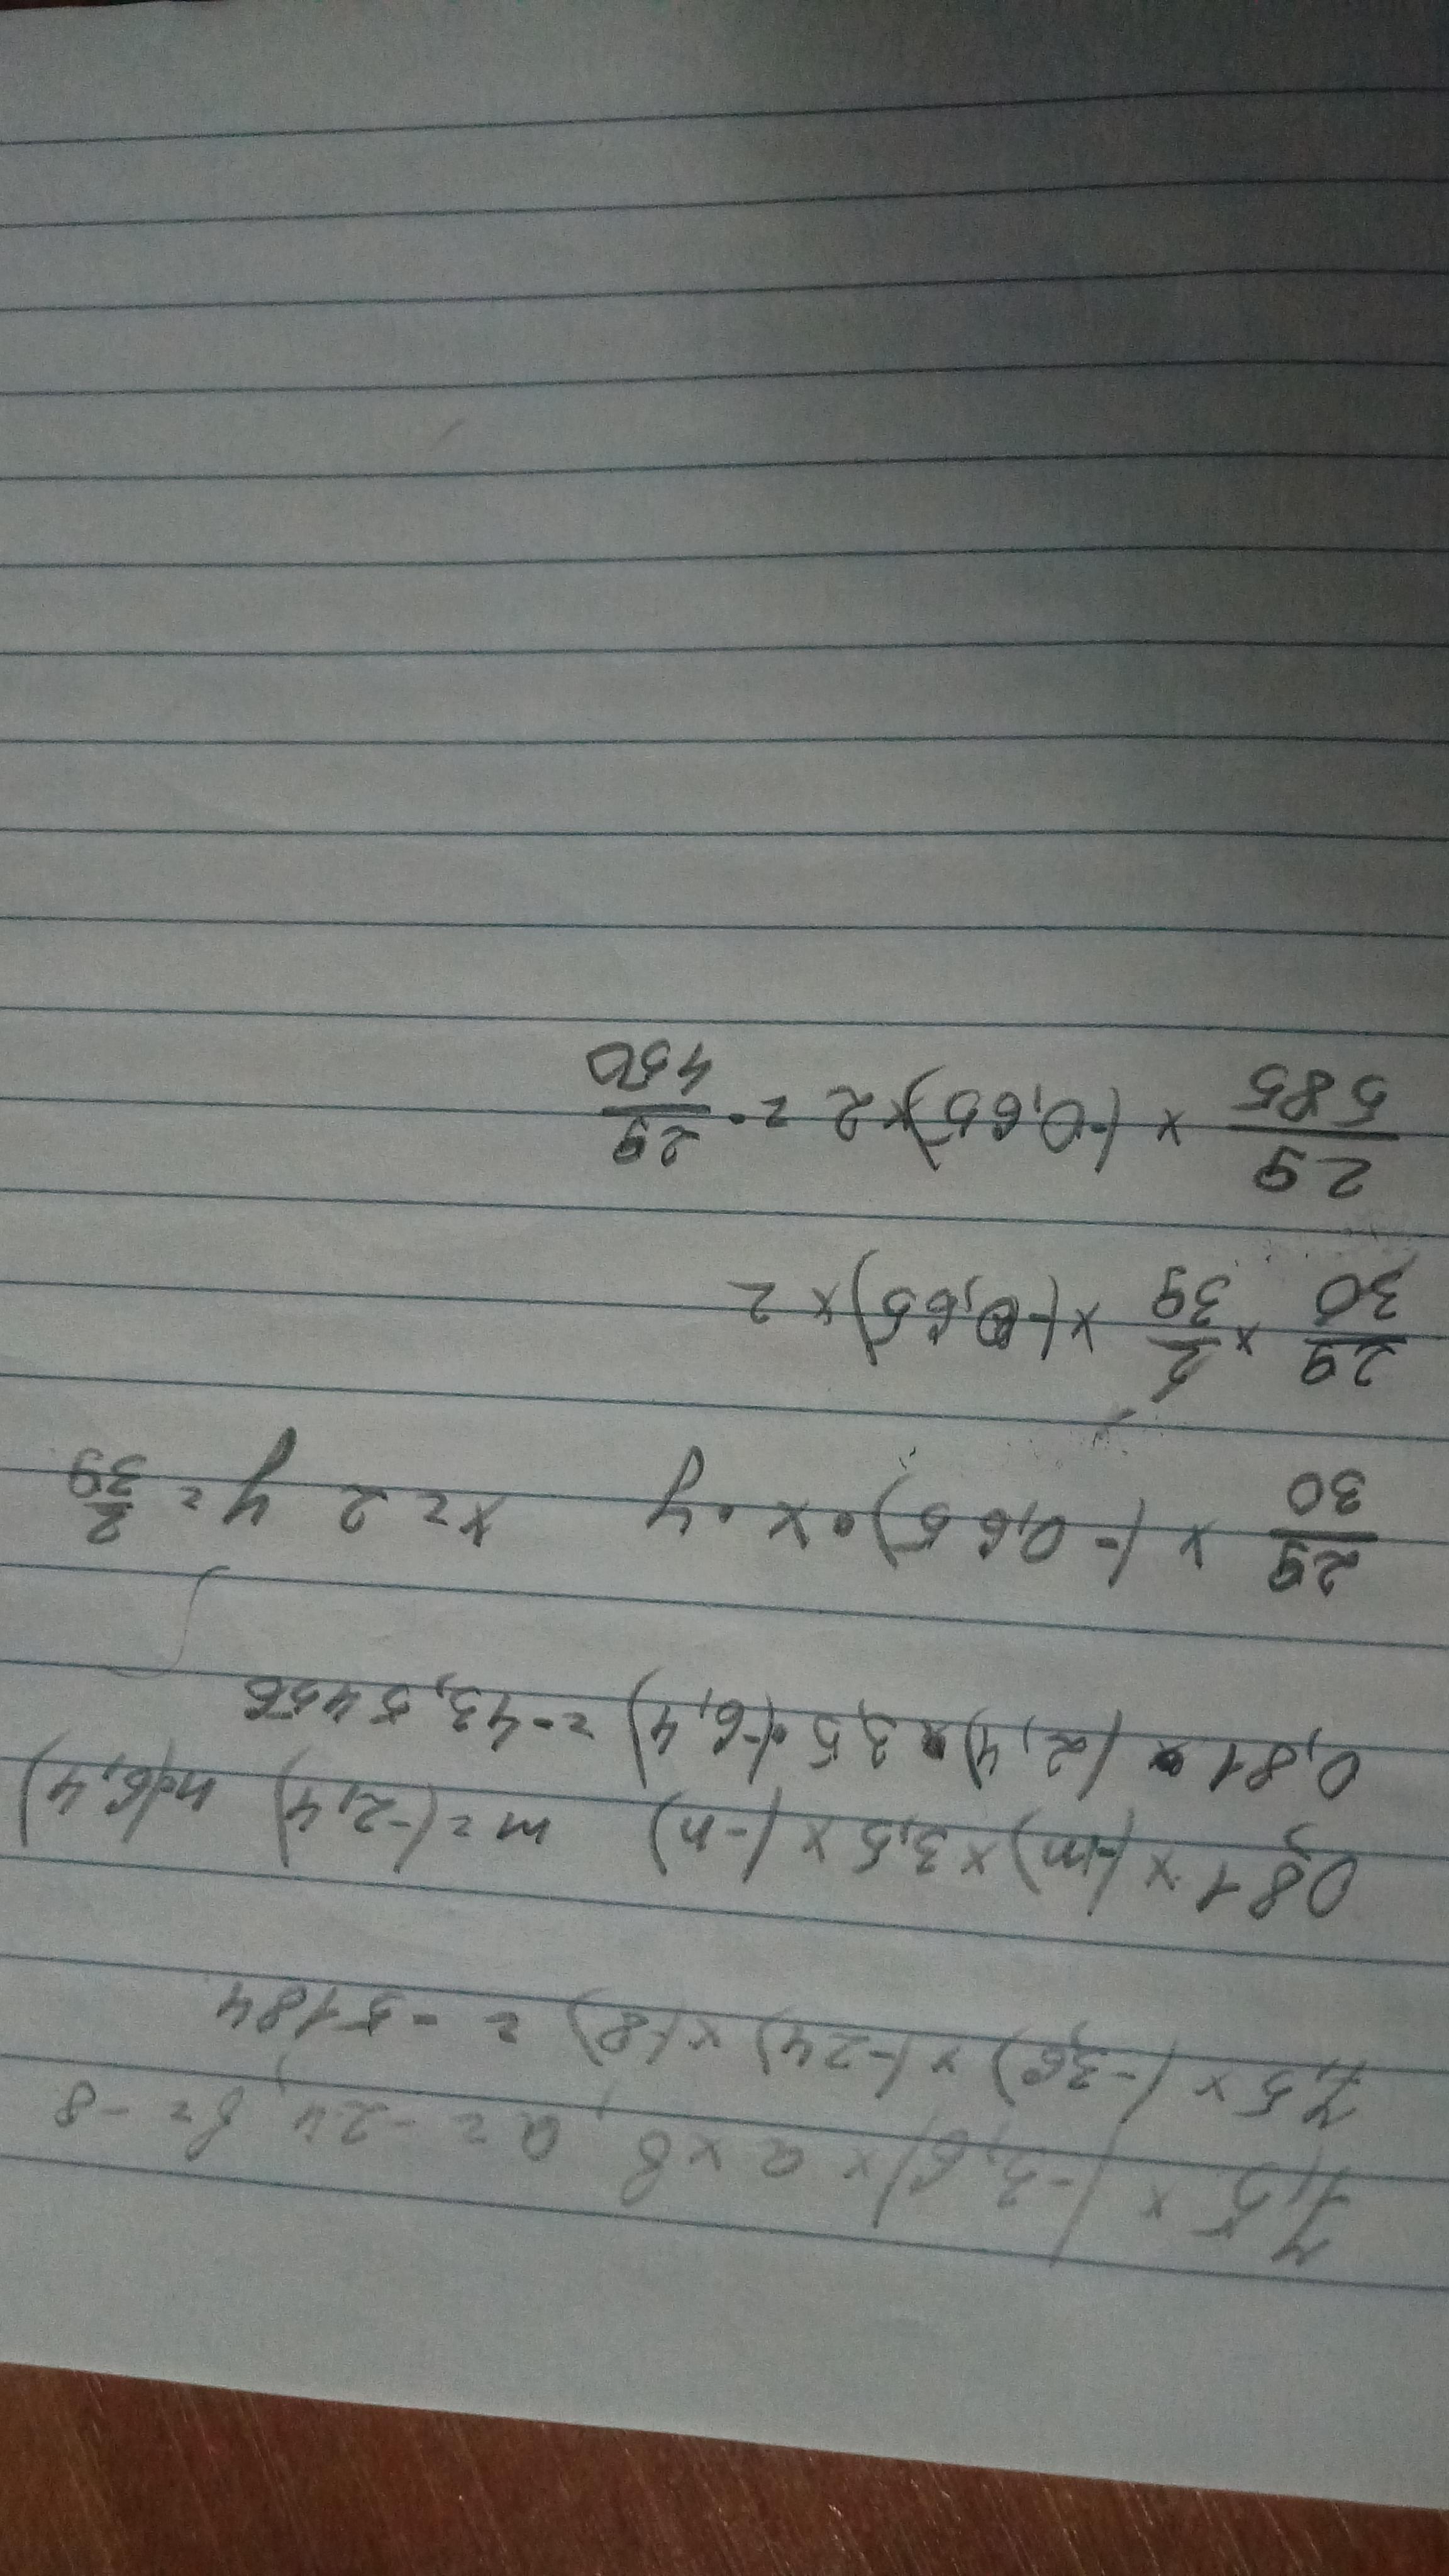 7,5 x (-3,6) x a x b, a = -24, b = -8
7,5 x (-3,6) x (-24) x (-8) = -5184
0,81 x (-m) x 3,5 x (-n) m = (-2,4) n=(6,4)
0,81 • (2,4) • 3,5 • (-6,4) = -43,5456
29/30 x (-0,65) • x • y x = 2 y = 2/39
29/30 x 2/39 x (-0,65) x 2
29/585 x (-0,65) x 2 = - 29/450